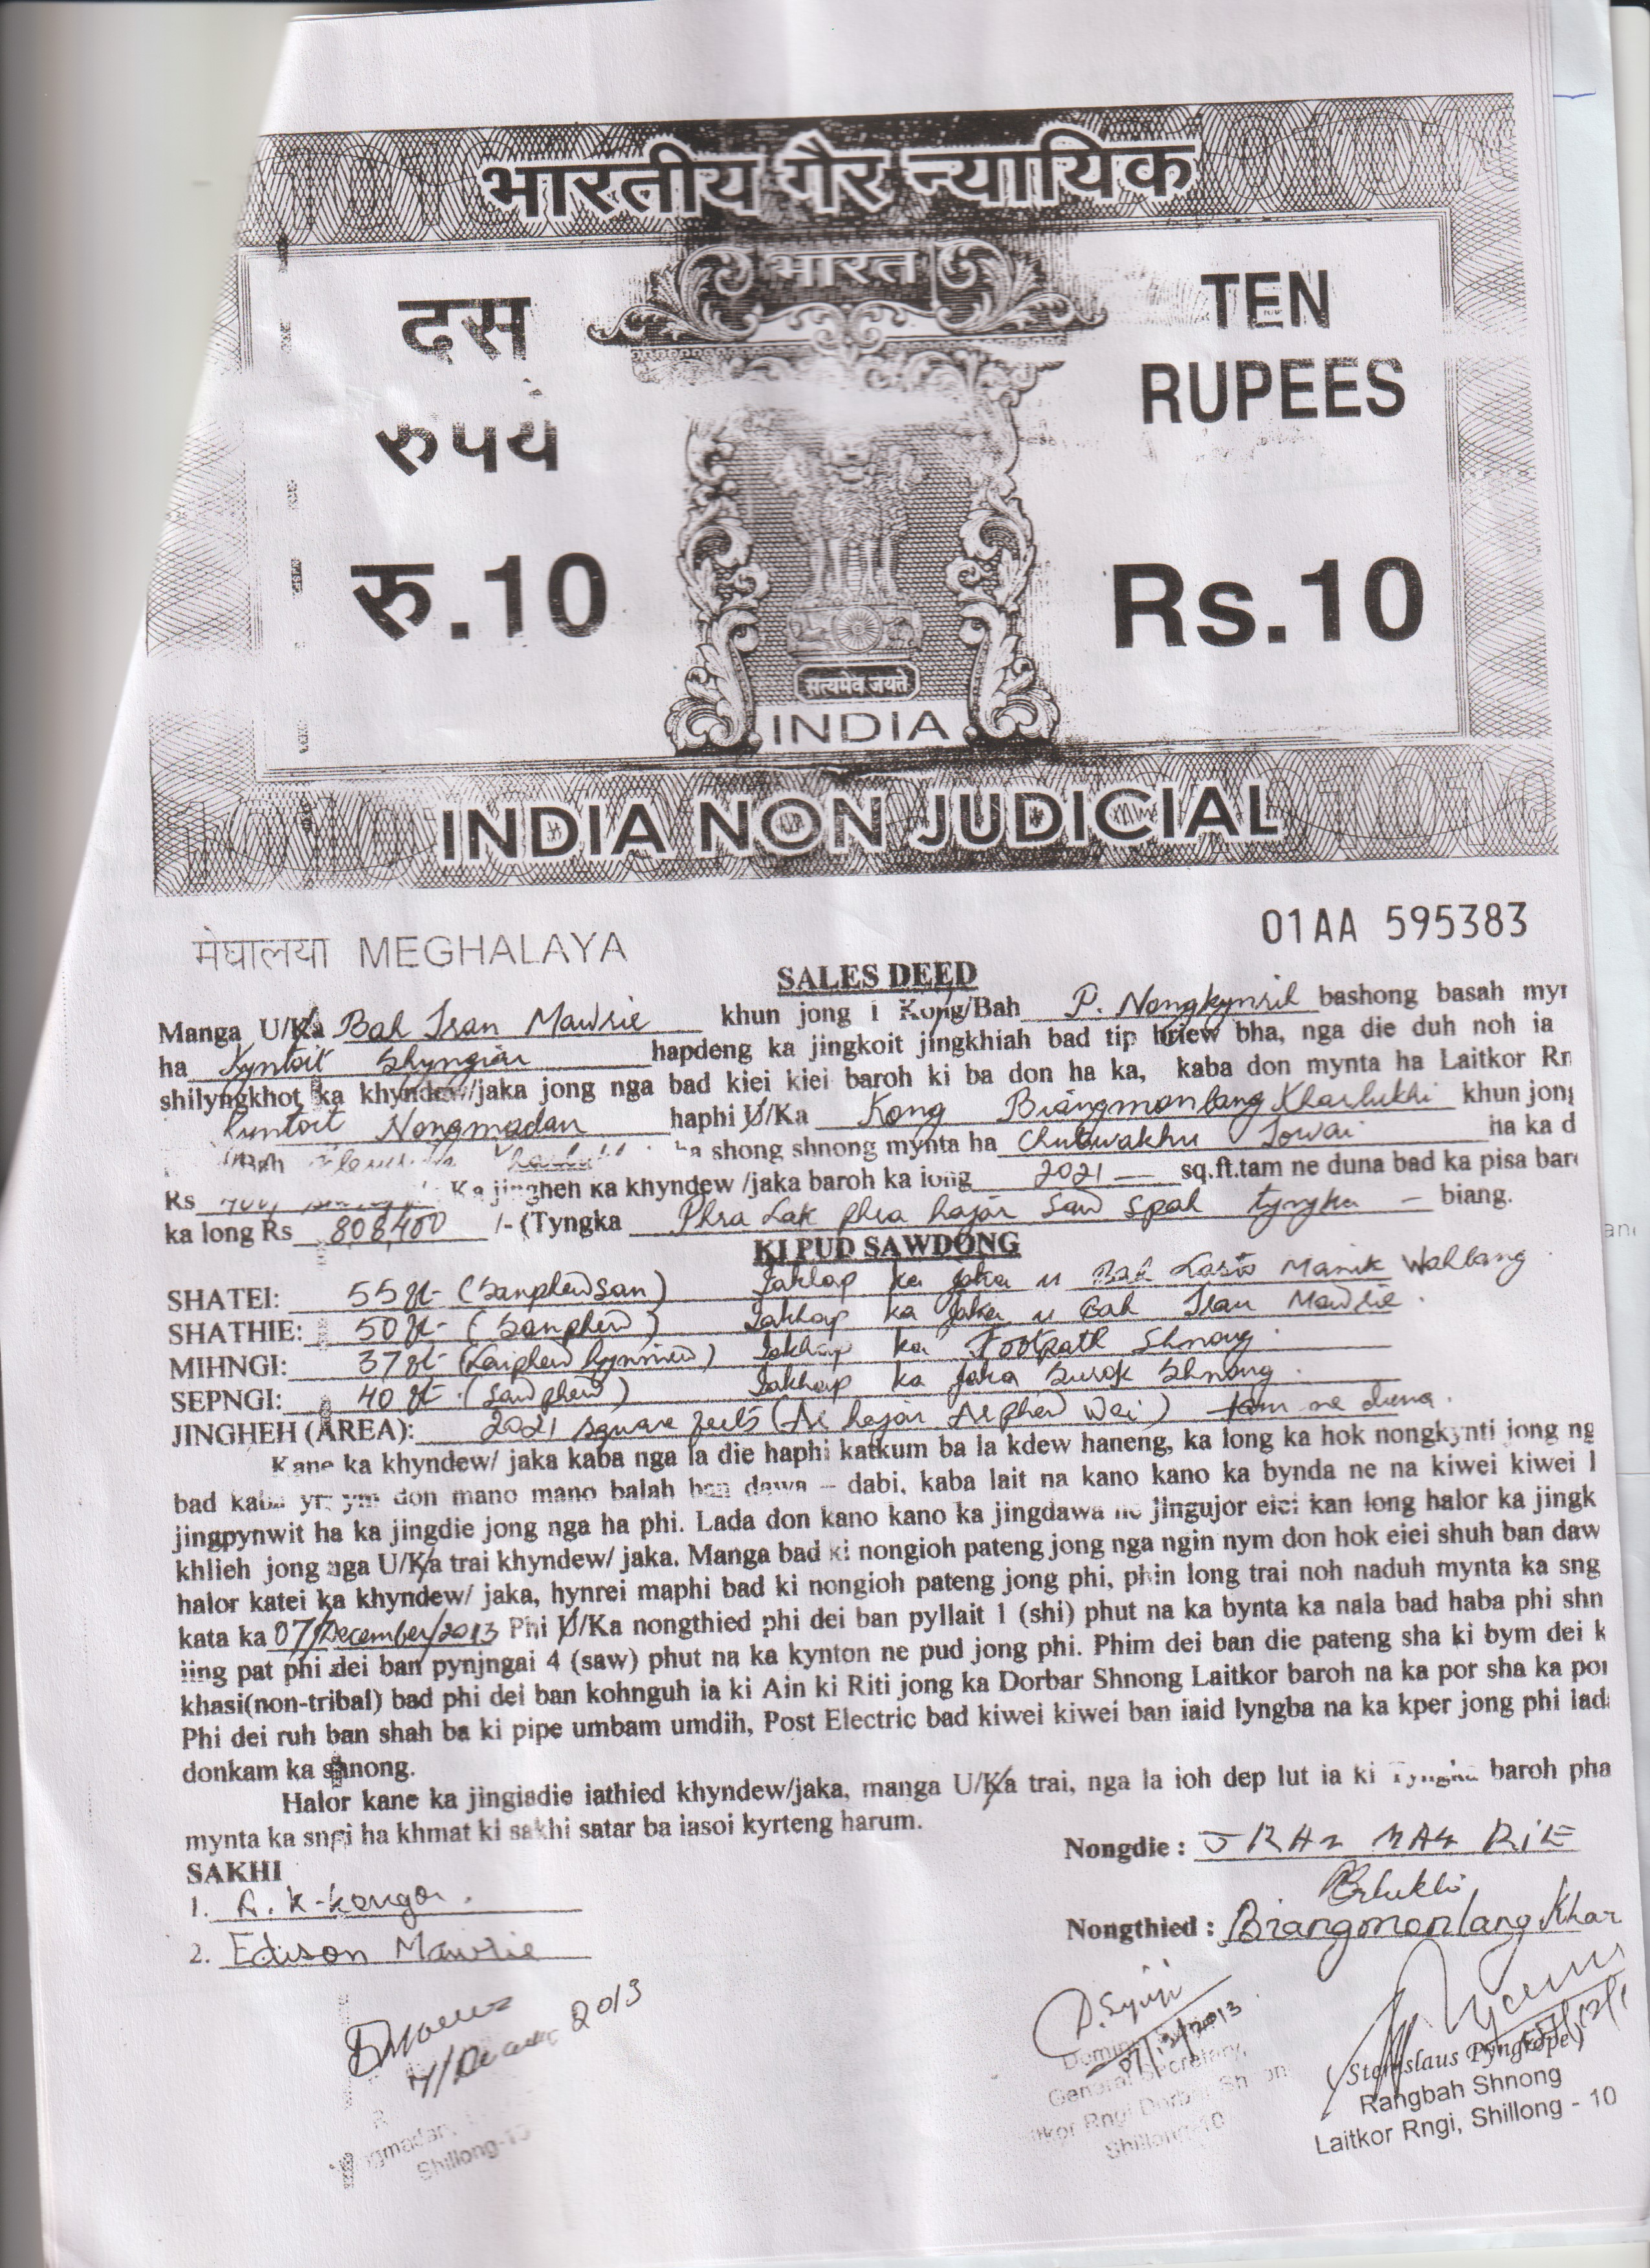 भारतीय गैर न्यायिक
भारत
दस
रुपये
TEN
RUPEES
रु.10
Rs.10
सत्यमेव जयते
INDIA
INDIA NON JUDICIAL
01AA 595383
मेघालया MEGHALAYA
SALES DEED
Manga U/Ka Bah Iran Mawrie khun jong i Kong/Bah P. Nongkynril bashong basah myr
ha Kyntoit Shyngiar hapdeng ka jingkoit jingkhiah bad tip briew bha, nga die duh noh ia
shilyngkhot ka khyndew/jaka jong nga bad kiei kiei baroh ki ba don ha ka, kaba don mynta ha Laitkor Rn
Kyntoit Nongmadan haphi U/Ka Kong Biangmonlang Kharlukhi khun jong
shong shnong mynta ha Chutwakhu Jowai ha ka d
Rs Ka jingheh ka khyndew /jaka baroh ka long 2021 sq.ft.tam ne duna bad ka pisa baro
ka long Rs 808,400 /- (Tyngka Phra Lak phra hajar Saw Spah tyngka - biang.
KI PUD SAWDONG
SHATEI: 55 ft- (Sanphew san) Jakhap ka jaka u Bah Manik Wahlang
SHATHIE: 50 ft- (Sanphew) Jakhap ka jaka u Bah Iran Mawrie.
MIHNGI: 37 ft- (Laiphew hynniew) Jakhap ka Footpath Shnong.
SEPNGI: 40 ft. (Sawphew) Jakhap ka jaka Surok Shnong.
JINGHEH (AREA): 2021 square feets (Ar hajar Arphew wei) tam ne duna.
Kane ka khyndew/ jaka kaba nga la die haphi katkum ba la kdew haneng, ka long ka hok nongkynti jong ng
bad kaba ym don mano mano balah ban dawa – dabi, kaba lait na kano kano ka bynda ne na kiwei kiwei l
jingpynwit ha ka jingdie jong nga ha phi. Lada don kano kano ka jingdawa ne jingujor eiei kan long halor ka jingk
khlieh jong nga U/Ka trai khyndew/ jaka. Manga bad ki nongioh pateng jong nga ngin nym don hok eiei shuh ban daw
halor katei ka khyndew/ jaka, hynrei maphi bad ki nongioh pateng jong phi, phin long trai noh naduh mynta ka sng
kata ka 07/December/2013 Phi U/Ka nongthied phi dei ban pyllait 1 (shi) phut na ka bynta ka nala bad haba phi shn
iing pat phi dei ban pynjngai 4 (saw) phut na ka kynton ne pud jong phi. Phim dei ban die pateng sha ki bym dei k
khasi(non-tribal) bad phi dei ban kohnguh ia ki Ain ki Riti jong ka Dorbar Shnong Laitkor baroh na ka por sha ka por
Phi dei ruh ban shah ba ki pipe umbam umdih, Post Electric bad kiwei kiwei ban iaid lyngba na ka kper jong phi lada
donkam ka shnong.
Halor kane ka jingiadie iathied khyndew/jaka, manga U/Ka trai, nga la ioh dep lut ia ki Tyngka baroh pha
mynta ka sngi ha khmat ki sakhi satar ba iasoi kyrteng harum.
SAKHI
Nongdie : IRAN MAWRIE
1. R. K-kongor.
Brlukhi
Nongthied : Biangmonlang Khar
2. Edison Mawrie
2013
D. Syiji
07/12/2013
General Secretary,
Laitkor Rngi Dorbar Shnong
Shillong-10
Shillong-10
(Stanislaus Pyngrope)
Rangbah Shnong
Laitkor Rngi, Shillong - 10